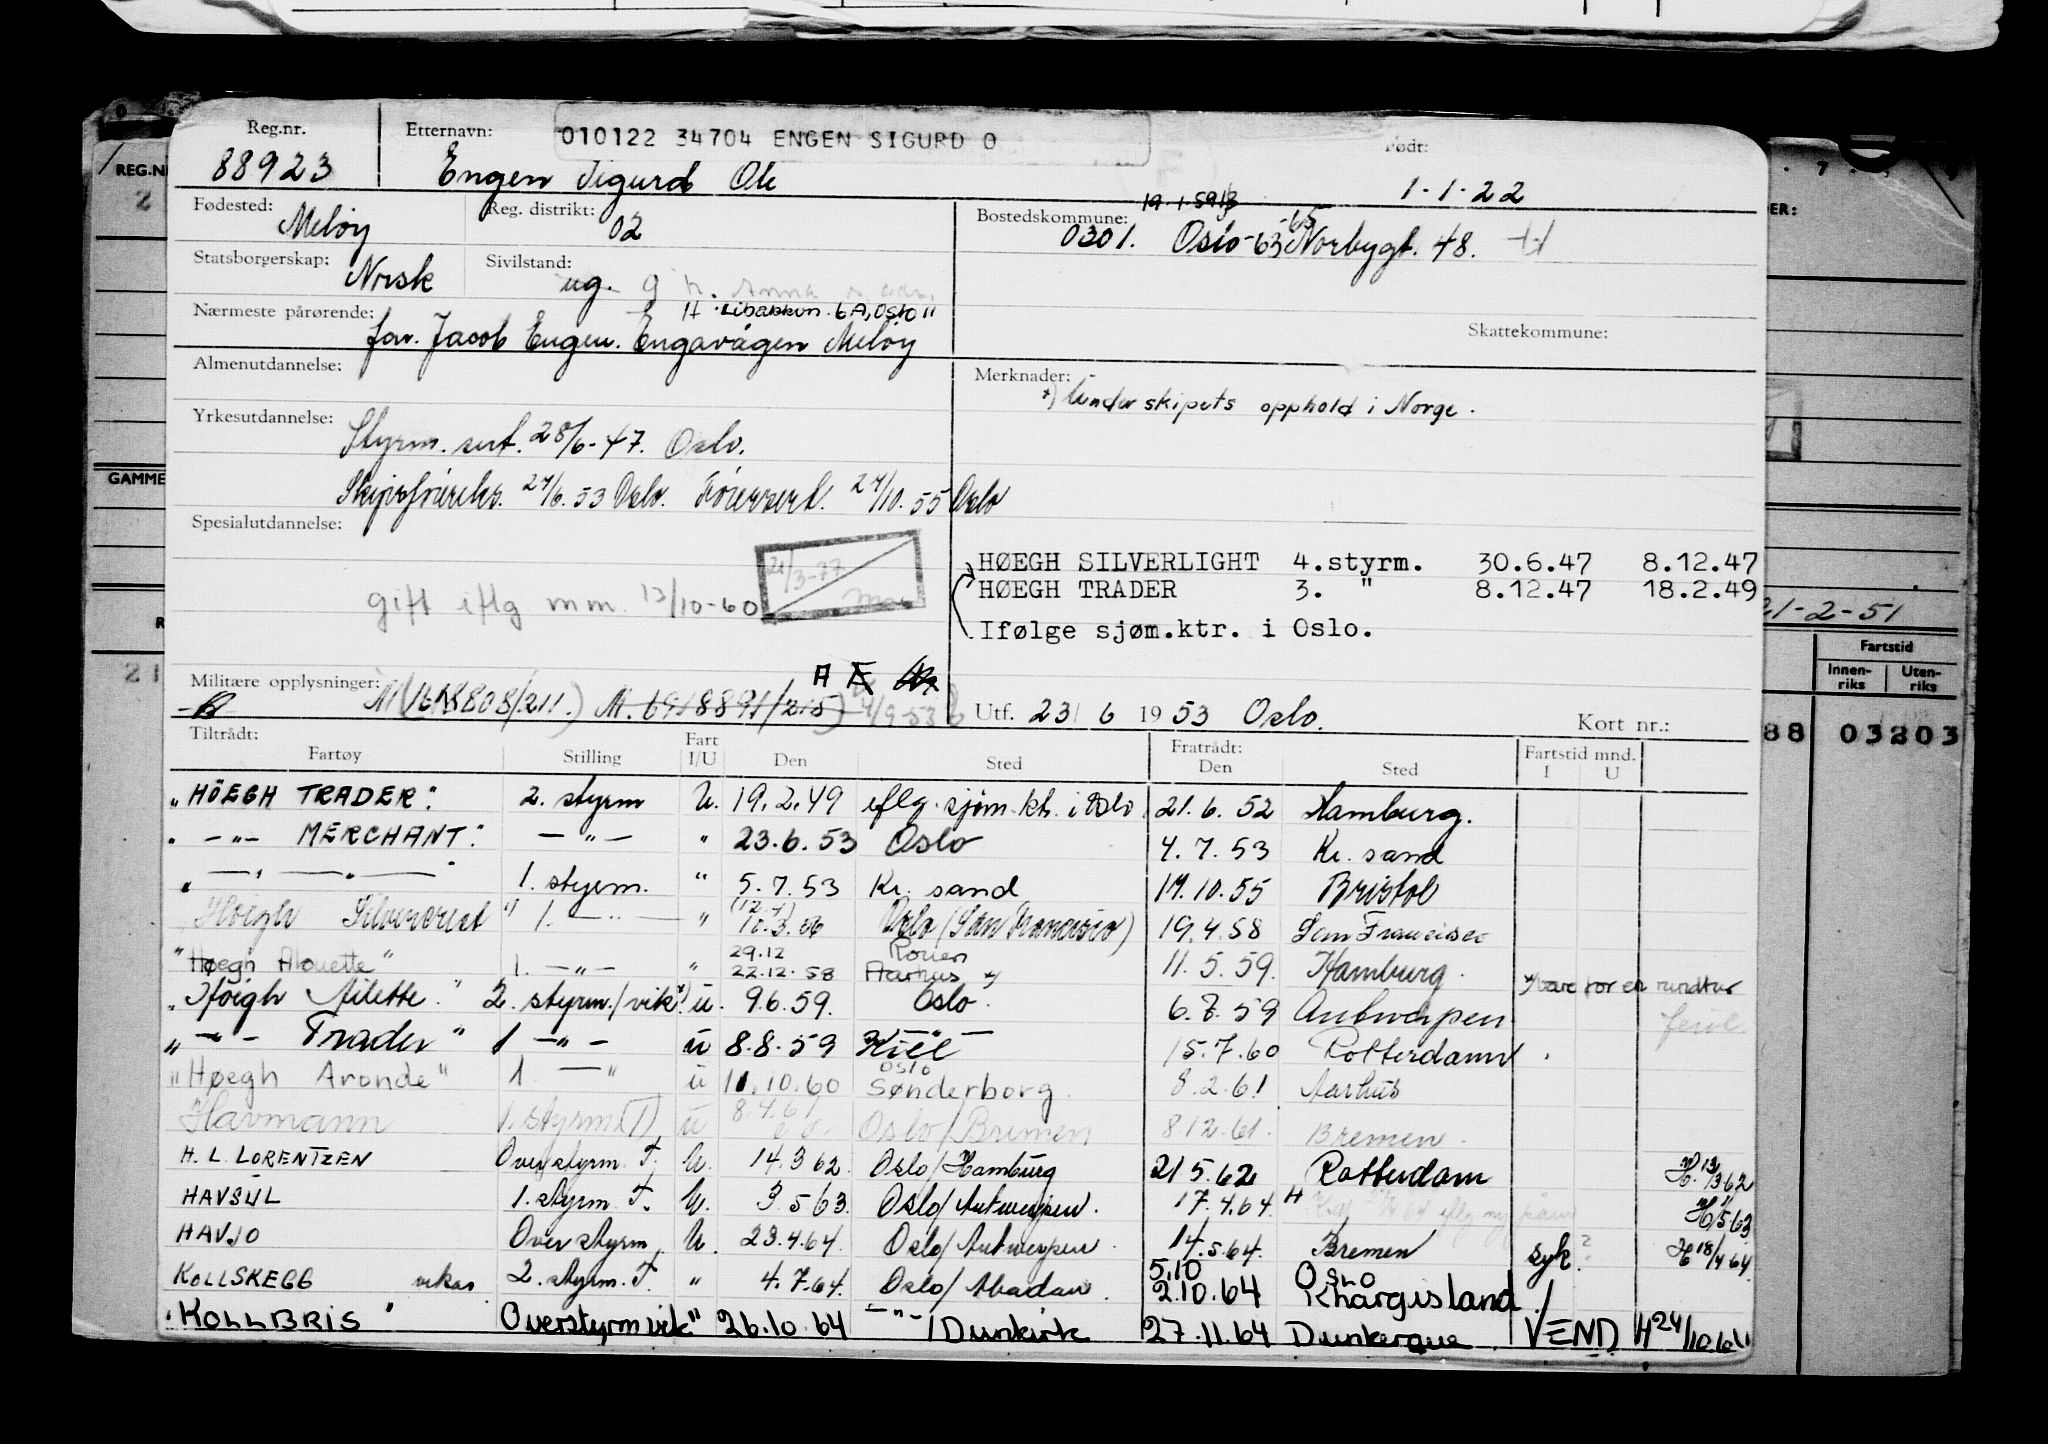 Reg.nr. Etternavn: 010122 34704 ENGEN SIGURD O Født:
88923 Engen Sigurd Ole 1-1-22
Fødested: Meløy Reg. distrikt: 02 Bostedskommune: 19.1.59
0301. Oslo-63 -65 Norbygt. 48.
Statsborgerskap: Norsk Sivilstand: ug. g h. Anna
Nærmeste pårørende: H 6A, Oslo "
far. Jacob Engen. Engavågen Meløy Skattekommune:
Almenutdannelse: Merknader:
*) Under skipets opphold i Norge.
Yrkesutdannelse:
Styrm. sert. 28/6-47. Oslo.
Skipsførereks. 24/6.53 Oslo. 24/10.55 Oslo
Spesialutdannelse:
21/3-77
HØEGH SILVERLIGHT 4.styrm. 30.6.47 8.12.47
HØEGH TRADER 3. " 8.12.47 18.2.49
gift iflg mm. 13/10-60
Ifølge sjøm.ktr. i Oslo.
21-2-51
Militære opplysninger: H
Utf. 23/6 1953 Oslo. Kort nr.:
Tiltrådt: Fratrådt:
Fartøy Stilling Fart I/U Den Sted Den Sted Fartstid mnd. I U
"HÖEGH TRADER". 2. styrm U. 19.2.49 iflg. sjøm.ktr. i Oslo 21.6.52 Hamburg.
" -"- MERCHANT." -"- " 23.6.53 Oslo 4.7.53 Kr. sand
" -"- -"- " 1. styrm. " 5.7.53 Kr. sand 14.10.55 Bristol
"Höegh Silvercrest" 1. -"- " (12.4) 10.3.56 Oslo (San Francisco) 19.4.58 San Francisco
29.12 Rouen
"Høegh Alouette" 1. -"- " 22.12.58 Aarhus *) 11.5.59. Hamburg.
*) bare for en rundtur
"Höegh Ailette." 2. styrm./vik*) u. 9.6.59. Oslo. 6.7.59 Antwerpen
feil
" -"- Trader" 1 -"- u 8.8.59 Kiel 15.7.60 Rotterdam
"Høegh Aronde" 1. -"- u 11.10.60 Oslo Sønderborg. 8.2.61 Aarhus
Havmann 1. styrm (T) u 8.4.61 Oslo/Bremen 8.12.61. Bremen.
H. L. LORENTZEN Overstyrm. T. U. 14.3.62. Oslo/Hamburg 21.5.62 Rotterdam H. 13/3 62
HAVSUL 1. styrm T. U. 3.5.63. Oslo/Antwerpen. 17.4.64 H H 1/5 63
HAVJO Overstyrm. U. 23.4.64. Oslo/Antwerpen 14.5.64. Bremen syk? H 18/4 64
5.10 Oslo
KOLLSKEGG vikar 2. styrm. T. " 4.7.64. Oslo/Abadan. 2.10.64 Khargisland
"KOLLBRIS" Overstyrm vik" 26.10.64 -"-/Dunkirk 27.11.64 Dunkerque VEND H 24/10.64
REG.N
GAMME
Fartstid
Innen-riks Uten-riks
88 03203